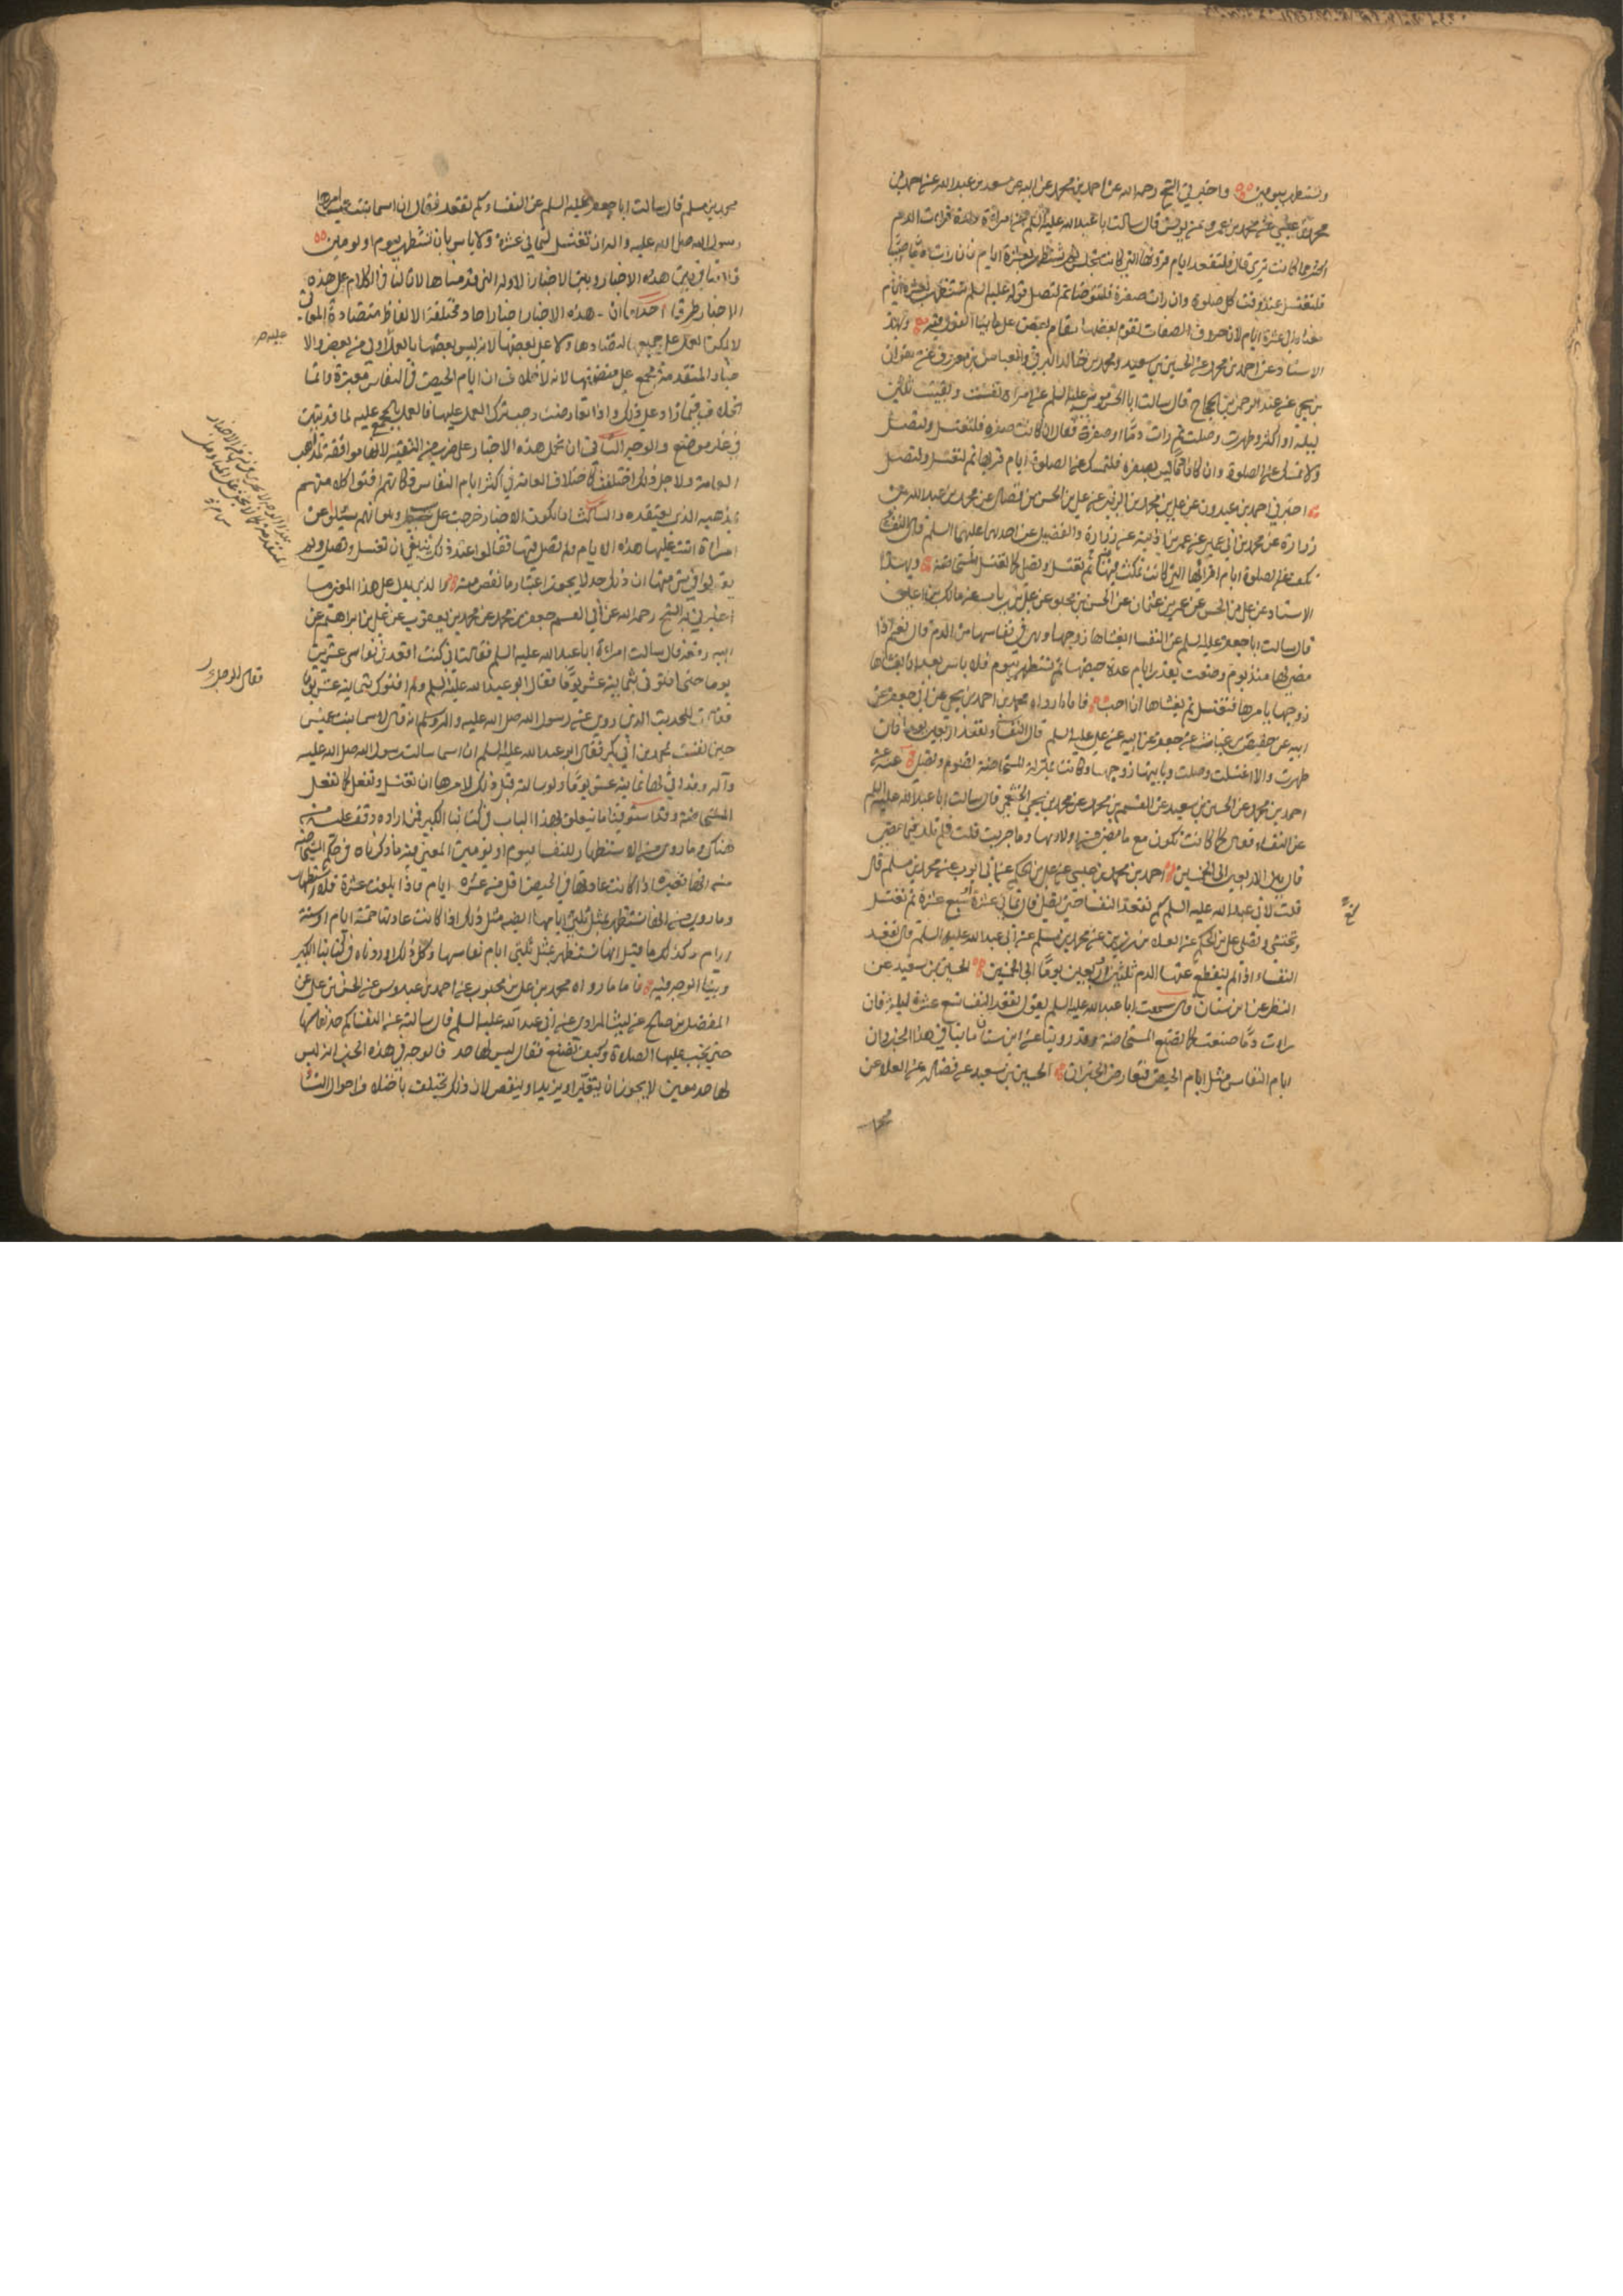 وتستظهر بيومين واخبرني الشيخ رحمه الله عن احمد بن محمد عن ابيه عن سعد بن عبد الله عن احمد بن
محمد بن عيسى عن محمد بن عمرو عن يونس قال سالت ابا عبد الله عليه السلم عن امراة ولدت فرات الدم
اكثر مما كانت ترى قال فلتقعد ايام قروئها التي كانت تجلس ثم تستظهر بعشرة ايام فان رات دما صبيبا
فلتغتسل عند وقت كل صلوة وان رات صفرة فلتتوضا ثم لتصل قوله عليه السلم تستظهر بعشرة ايام
معناه الى عشرة ايام لان حروف الصفات تقوم بعضها مقام بعض على ما بينا القول فيه وبهذا
الاسناد عن احمد بن محمد عن الحسين بن سعيد ومحمد بن خالد البرقي والعباس بن معروف عن صفوان
بن يحيى عن عبد الرحمن بن الحجاج قال سالت ابا الحسن موسى عليه السلم عن امراة نفست وبقيت ثلثين
ليلة او اكثر وطهرت وصلت ثم رات دما او صفرة فقال ان كانت صفرة فلتغتسل ولتصل
ولا تمسك عن الصلوة وان كان دما ليس بصفرة فلتمسك عن الصلوة ايام قرئها ثم لتغتسل ولتصل
اخبرني احمد بن عبدون عن علي بن محمد بن الزبير عن علي بن الحسن بن فضال عن محمد بن عبد الله بن
زرارة عن محمد بن ابي عمير عن عمر بن اذينة عن زرارة والفضيل عن احدهما عليهما السلم قال النفسا
تكف عن الصلوة ايام اقرائها التي كانت تمكث فيها ثم تغتسل وتصلي كما تغتسل المستحاضة وبهذا
الاسناد عن علي بن الحسن عن عمرو بن عثمان عن الحسن بن محبوب عن علي بن رياب عن مالك بن اعين
قال سالت ابا جعفر عليه السلم عن النفسا يغشاها زوجها وهي في نفاسها من الدم قال نعم اذا
مضى لها منذ يوم وضعت بقدر ايام عدة حيضها ثم تستظهر بيوم فلا باس بعد ان يغشاها
زوجها يامرها فتغتسل ثم يغشاها ان احب فاما ما رواه محمد بن احمد بن يحيى عن ابي جعفر عن
ابيه عن حفص بن غياث عن جعفر عن ابيه عن علي عليه السلم قال النفسا تقعد اربعين يوما فان
طهرت والا اغتسلت وصلت وياتيها زوجها وكانت بمنزلة المستحاضة تصوم وتصلي عنه عن
احمد بن محمد عن الحسين بن سعيد عن القسم بن محمد عن محمد بن يحيى الخثعمي قال سالت ابا عبد الله عليه السلم
عن النفساء فقال كما كانت تكون مع ما مضى من اولادها وما جربت قلت فلم تلد فيما مضى
قال بين الاربعين الى الخمسين احمد بن محمد بن عيسى عن علي بن الحكم عن ابي ايوب عن محمد بن مسلم قال
قلت لابي عبد الله عليه السلم كم تقعد النفسا حتى تصلي قال ثماني عشرة سبع عشرة ثم تغتسل
وتحتشي وتصلي علي بن الحكم عن العلا بن رزين عن محمد بن مسلم عن ابي عبد الله عليه السلم قال تقعد
النفساء اذا لم ينقطع عنها الدم ثلثين اربعين يوما الى الخمسين الحسين بن سعيد عن
النضر عن ابن سنان قال سمعت ابا عبد الله عليه السلم يقول تقعد النفسا تسع عشرة ليلة فان
رات دما صنعت كما تصنع المستحاضة وقد روينا عن ابن سنان ما ينافي هذا الخبر وان
ايام النفاس مثل ايام الحيض فتعارض الخبران الحسين بن سعيد عن فضالة عن العلا عن
محمد
محمد بن مسلم قال سالت ابا جعفر عليه السلم عن النفساء كم تقعد فقال ان اسما بنت عميس امرها
رسول الله صلى الله عليه واله ان تغتسل لثماني عشرة ولا باس بان تستظهر بيوم او يومين
فلا تنافي بين هذه الاخبار وبين الاخبار الاولة التي قدمناها لان لنا في الكلام على هذه
الاخبار طرقا احدها ان هذه الاخبار اخبار احاد مختلفة الالفاظ متضادة المعاني
لا يمكن العمل على جميعها لتضادها ولا على بعضها لانه ليس بعضها بالعمل اولى من بعض والا
خبار المتقدمة مجمع على متضمنها لانه لا خلاف ان ايام الحيض في النفاس معتبرة وانما
الخلاف فيما زاد على ذلك واذا تعارضت وجب ترك العمل عليها والعمل بالمجمع عليه لما قد بين
في غير موضع والوجه الثاني ان تحمل هذه الاخبار على ضرب من التقية لانها موافقة لمذهب
العامة ولاجل ذلك اختلفت كاختلاف العامة في اكثر ايام النفاس فكانهم افتوا كلا منهم
بمذهبه الذي يعتقده والثالث ان يكون الاخبار خرجت على سبب وهو انهم سئلوا عن
امراة اتت عليها هذه الايام ولم تصل فيها فقالوا عند ذلك ينبغي ان تغتسل وتصلي ولم
يقولوا في شي منها ان ذلك حد لا يجوز اعتبار ما نقص منه والذي يدل على هذا المعنى ما
اخبرني به الشيخ رحمه الله عن ابي القسم جعفر بن محمد عن محمد بن يعقوب عن علي بن ابراهيم عن
ابيه رفعه قال سالت امراة ابا عبد الله عليه السلم فقالت اني كنت اقعد في نفاسي عشرين
يوما حتى افتوني بثمانية عشر يوما فقال ابو عبد الله عليه السلم ولم افتوك بثمانية عشر يوما
فقالت للحديث الذي روي عن رسول الله صلى الله عليه واله وسلم انه قال لاسما بنت عميس
حين نفست بمحمد بن ابي بكر فقال ابو عبد الله عليه السلم ان اسما سالت رسول الله صلى الله عليه
وآله وقد اتى لها ثمانية عشر يوما ولو سالته قبل ذلك لامرها ان تغتسل وتفعل كما تفعل
المستحاضة وقد استوفينا ما يتعلق بهذا الباب في كتابنا الكبير فمن اراده وقف عليه من
هناك وما روي من الاستظهار للنفساء بيوم او يومين المعنى فيه ما ذكرناه في حكم المستحاضة
من انها معتبرة اذا كانت عادتها في الحيض اقل من عشرة ايام فاذا بلغت عشرة فلا استظهار
وما روي من انها تستظهر بمثل ثلثي ايامها ايضا مثل ذلك اذا كانت عادتها خمسة ايام او ستة
ايام وكذلك ما قيل انها تستظهر بمثل ثلثي ايام نفاسها وكل ذلك اوردناه في كتابنا الكبير
وبينا الوجه فيه فاما ما رواه محمد بن علي بن محبوب عن احمد بن عبدوس عن الحسن بن علي عن
المفضل بن صالح عن ليث المرادي عن ابي عبد الله عليه السلم قال سالته عن النفساء كم حد نفاسها
حتى يجب عليها الصلاة وكيف تصنع فقال ليس لها حد فالوجه في هذه الخبر انه ليس
لها حد معين لا يجوز ان يتغير او يزيد او ينقص لان ذلك يختلف باختلاف احوال النسا
فقال الرجل